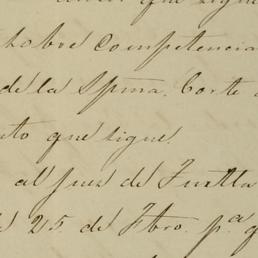 que sigue
sobre competencia
de la Spma. Corte
to que sigue.
al juez de Tuxtla
25. de Fbro. p.a q